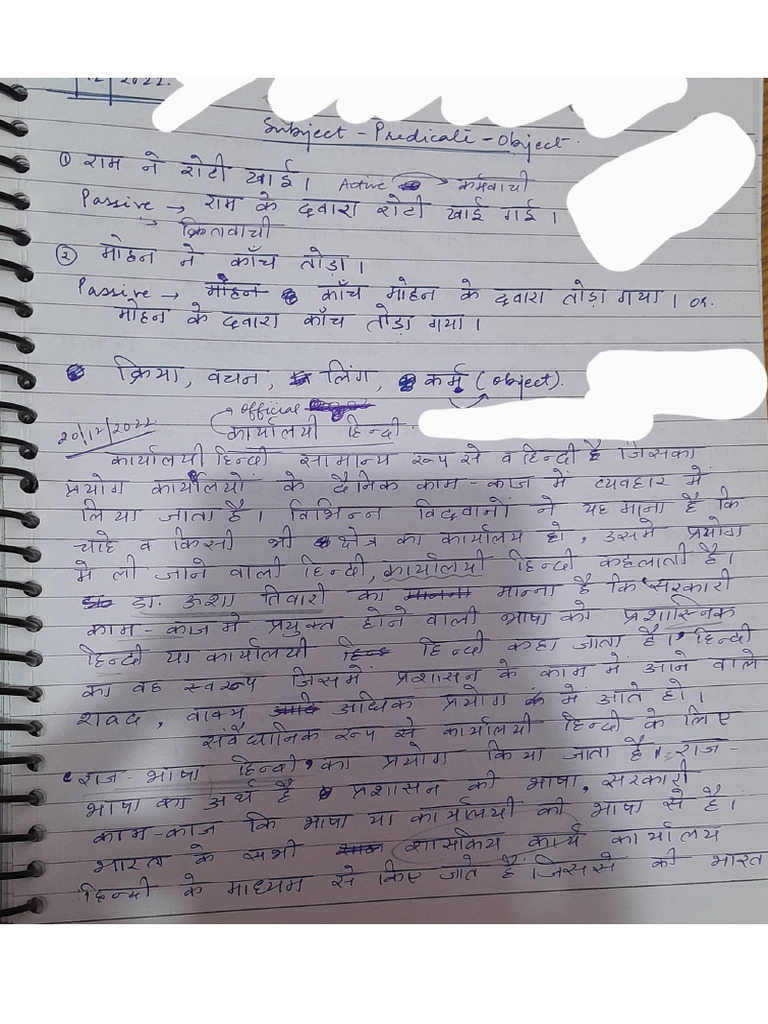 12 | 2022.
Subject - Predicate - Object.
① राम ने रोटी खाई। Active → कर्मवाची
Passive → राम के दवारा रोटी खाई गई।
→ क्रितवाची
② मोहन ने काँच तोड़ा।
Passive → मोहन काँच मोहन के दवारा तोड़ा गया। or.
मोहन के दवारा काँच तोड़ा गया।
क्रिया, वचन, लिंग, कर्म (object).
official
20/12/2022 कार्यालयी हिन्दी.
कार्यालयी हिन्दी सामान्य रूप से व हिन्दी है जिसका
प्रयोग कार्यालयों के दैनिक काम-काज में व्यवहार में
लिया जाता है। विभिन्न विदवानों ने यह माना है कि
चाहे व किसी भी क्षेत्र का कार्यालय हो, उसमे प्रयोग
मे ली जाने वाली हिन्दी, कार्यालयी हिन्दी कहलाती है।
डा. ऊशा तिवारी का मानना मान्ना है कि "सरकारी
काम-काज मे प्रयुक्त होने वाली भाषा को प्रशास्निक
हिन्दी या कार्यालयी हिन्द हिन्दी कहा जाता है।" हिन्दी
का वह स्वरूप जिसमें प्रशासन के काम में आने वाले
शवद, वाक्य अधिक प्रयोग में आते हो।
संवैधानिक रूप से कार्यालयी हिन्दी के लिए
"राज-भाषा हिन्दी" का प्रयोग किया जाता है। राज-
भाषा का अर्थ है प्रशासन की भाषा, सरकारी
काम-काज कि भाषा या कार्यालयी की भाषा से है।
भारत के सभी शासकिय कार्य कार्यालय
हिन्दी के माध्यम से किए जाते हैं जिससे की भारत